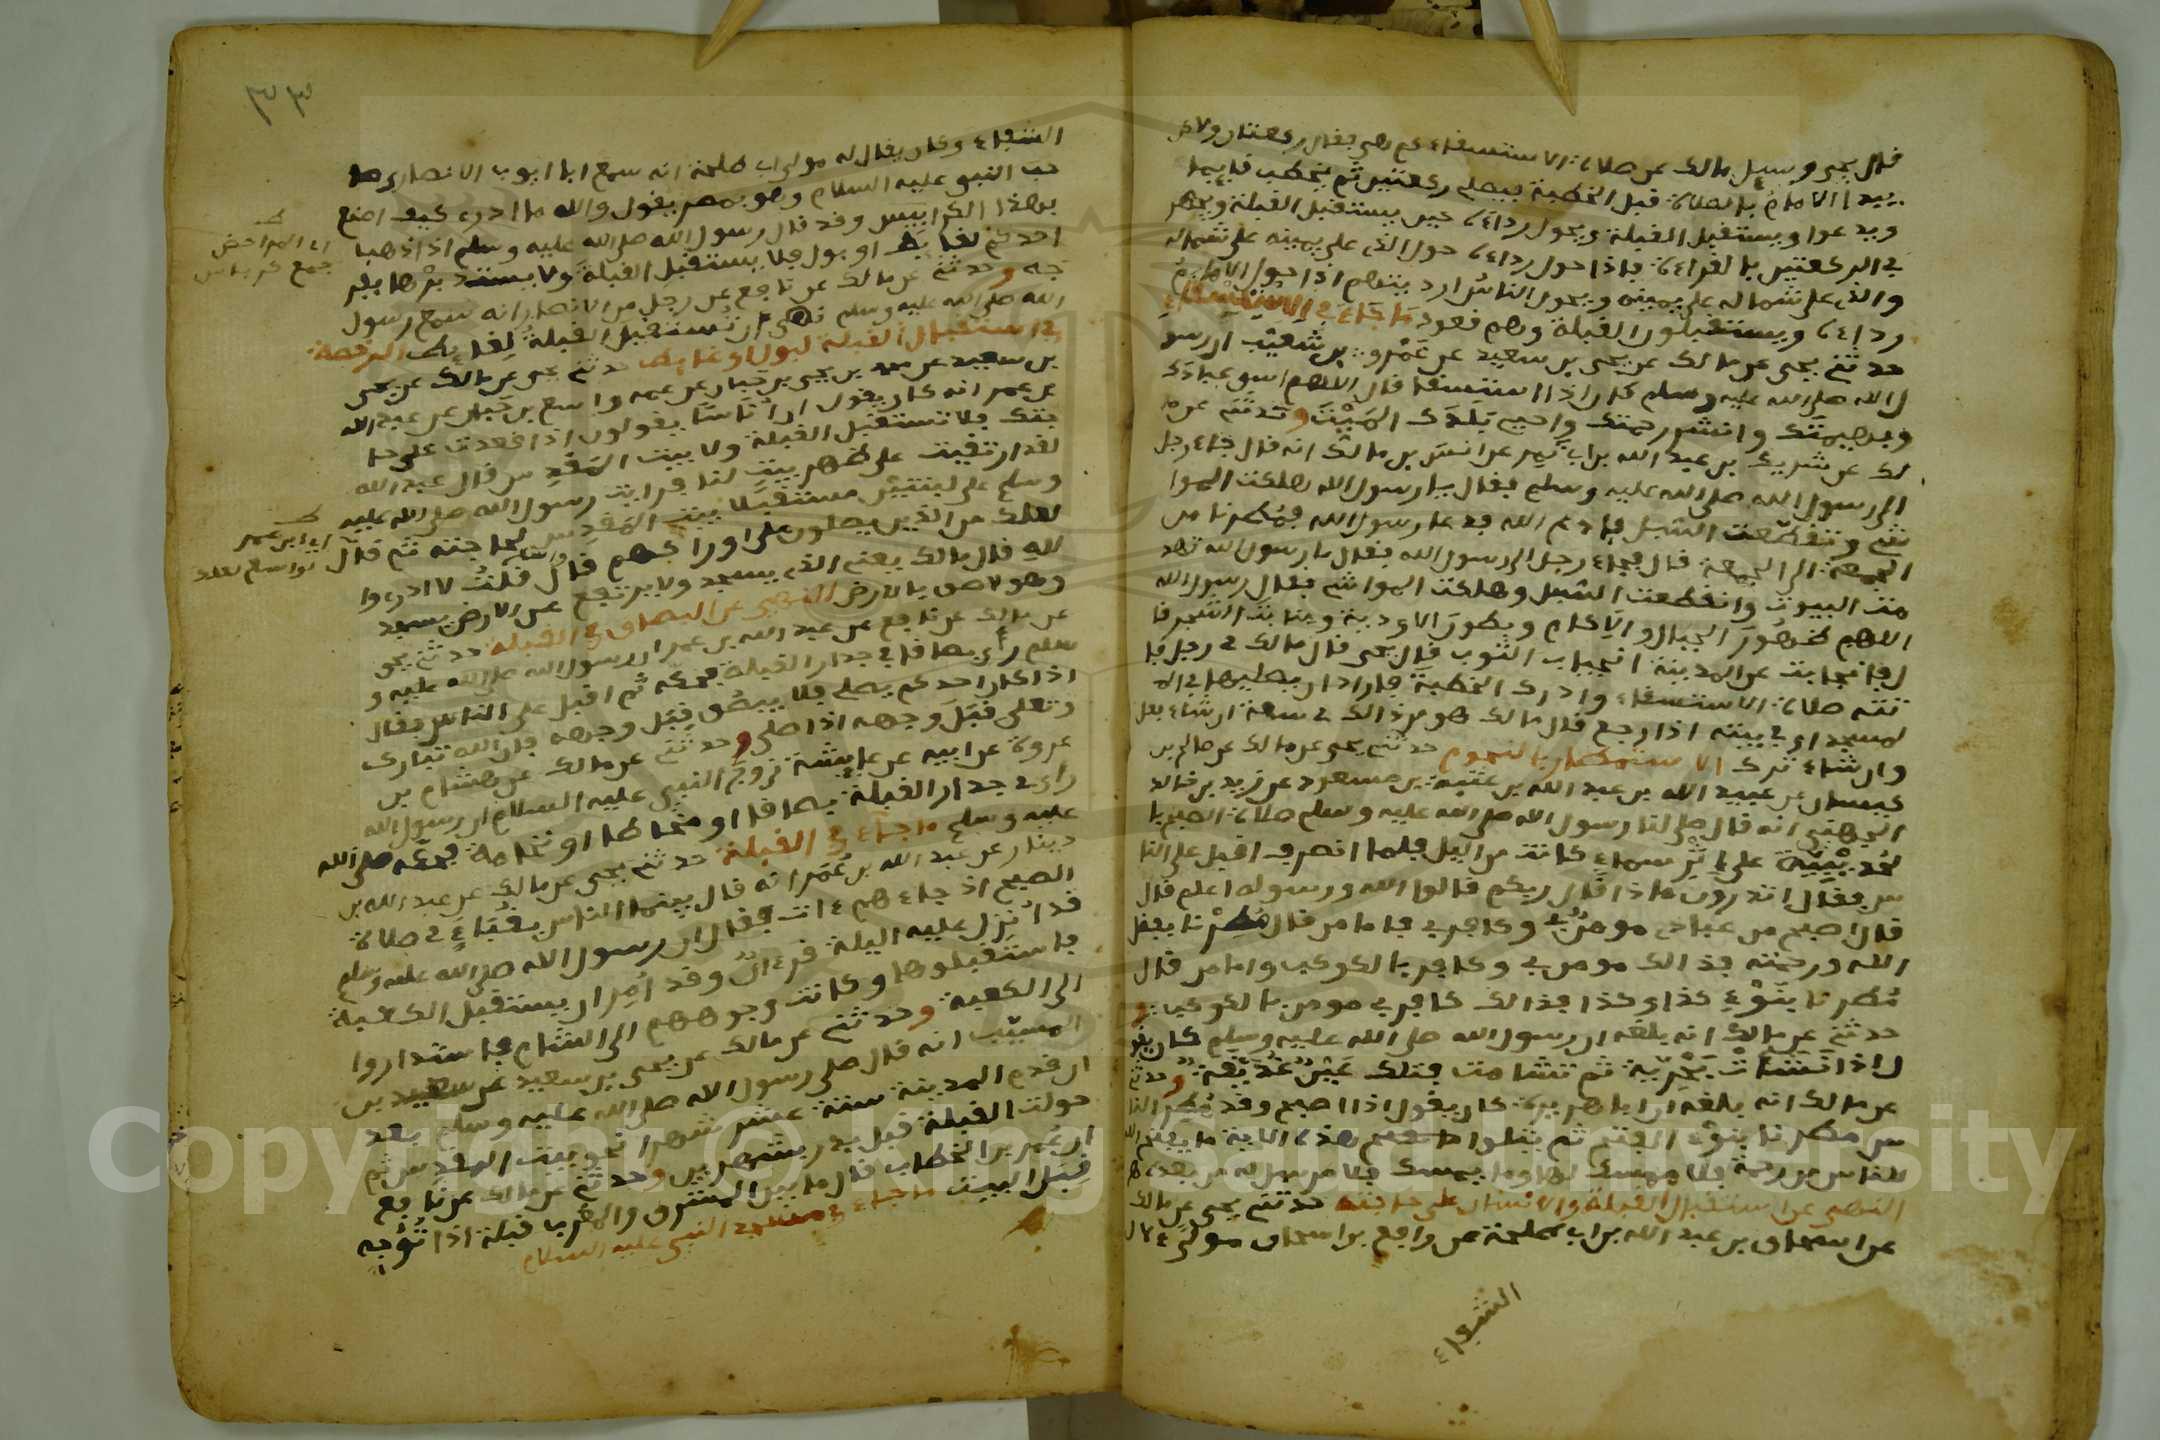 قال يحيى وسيل مالك عن صلاة الاستسقاء كم هي فقال ركعتان ولاكن
يبدا الامام بالصلاة قبل الخطبة فيصلي ركعتين ثم يخطب قايما
ويدعوا ويستقبل القبلة ويحول رداءه حين يستقبل القبلة ويجهر
في الركعتين بالقراءة فاذا حول رداءه حول الذي على يمينه على شماله
والذي على شماله على يمينه ويحول الناس ارديتهم اذا حول الامام
رداءه ويستقبلون القبلة وهم قعود ما جاء في الاستسقاء
حدثني يحيى عن مالك عن يحيى بن سعيد عن عمرو بن شعيب ان رسو
ل الله صلى الله عليه وسلم كان اذا استسقا قال اللهم اسق عبادك
وبهيمتك وانشر رحمتك واحيي بلدك الميت وحدثني عن ما
لك عن شريك بن عبد الله بن ابي نمر عن انس بن مالك انه قال جاء رجل
الى رسول الله صلى الله عليه وسلم فقال يا رسول الله هلكت الموا
شي وتقطعت السبل فادع الله فدعا رسول الله فمطرنا من
الجمعة الى الجمعة قال فجاء رجل الى رسول الله فقال يا رسول الله تهد
مت البيوت وانقطعت السبل وهلكت المواشي فقال رسول الله
اللهم ظهور الجبال والاكام وبطون الاودية ومنابت الشجر قا
ل فانجابت عن المدينة انجياب الثوب قال يحيى قال مالك في رجل فا
تته صلاة الاستسقاء وادرك الخطبة فاراد ان يصليها في الم
لمسجد او في بيته اذا رجع قال مالك هو من ذالك في سعة ان شاء فعل
وان شاء ترك الاستمطار بالنجوم حدثني يحيى عن مالك عن صالح بن
كيسان عن عبيد الله بن عبد الله بن عتبة بن مسعود عن زيد بن خالد
الجهني انه قال صلى لنا رسول الله صلى الله عليه وسلم صلاة الصبح با
لحديبية على اثر سماء كانت من اليل فلما انصرف اقبل على النا
س فقال اتدرون ماذا قال ربكم قالوا الله ورسوله اعلم قال
قال اصبح من عبادي مومن بي وكافر بي فاما من قال مطرنا بفضل
الله ورحمته فذالك مومن بي وكافر بالكوكب واما من قال
مطرنا بنوء كذا وكذا فذالك كافر بي مومن بالكوكب و
حدثني عن مالك انه بلغه ان رسول الله صلى الله عليه وسلم كان يقو
ل اذا نشات بحرية ثم تشامت فتلك عين غديقة وحدثني
عن مالك انه بلغه ان ابا هريرة كان يقول اذا اصبح وقد مطر النا
س مطرنا بنوء الفتح ثم يتلوا هذه الاية ما يفتح الله
للناس من رحمة فلا ممسك لها وما يمسك فلا مرسل له من بعده
النهي عن استقبال القبلة والانسان على حاجته حدثني يحيى عن مالك
عن اسحاق بن عبد الله بن ابي طلحة عن رافع بن اسحاق مولى ءال
الشفاء
٣٣
الشفاء وكان يقال له مولى ابي طلحة انه سمع ابا ايوب الانصاري صا
حب النبي عليه السلام وهو بمصر يقول والله ما ادري كيف اصنع
بهذا الكراييس وقد قال رسول الله صلى الله عليه وسلم اذا ذهبا
احدكم لغايط او بول فلا يستقبل القبلة ولا يستدبرها بفر
جه وحدثني عن مالك عن نافع عن رجل من الانصار انه سمع رسول
الله صلى الله عليه وسلم نهى ان تستقبل القبلة لغايط الرخصة
في استقبال القبلة لبول او غايط حدثني يحيى عن مالك عن يحيى
بن سعيد عن محمد بن يحيى بن حبان عن عمه واسع بن حبان عن عبد الله
بن عمر انه كان يقول ان اناسا يقولون اذا قعدت على حا
جتك فلا تستقبل القبلة ولا بيت المقدس قال عبد الله
لقد ارتقيت على ظهر بيت لنا فرايت رسول الله صلى الله عليه
وسلم على لبنتين مستقبلا بيت المقدس لحاجته ثم قال
لعلك من الذين يصلون على اوراكهم قال قلت لا ادري وا
لله قال مالك يعني الذي يسجد ولا يرتفع عن الارض يسجد
وهو لاصق بالارض النهي عن البصاق في القبلة حدثني يحيى
عن مالك عن نافع عن عبد الله بن عمر ان رسول الله صلى الله عليه و
سلم رأى بصاقا في جدار القبلة فحكه ثم اقبل على الناس فقال
اذا كان احدكم يصلي فلا يبصق قبل وجهه فان الله تبارك
وتعلى قبل وجهه اذا صلى وحدثني عن مالك عن هشام بن
عروة عن ابيه عن عايشة زوج النبي عليه السلام ان رسول الله
رأى في جدار القبلة بصاقا او مخاطا او نخامة فحكه صلى الله
عليه وسلم ما جاء في القبلة حدثني يحيى عن مالك عن عبد الله بن
دينار عن عبد الله بن عمر انه قال بينما الناس بقباء في صلاة
الصبح اذ جاءهم ءات فقال ان رسول الله صلى الله عليه وسلم
قد انزل عليه اليلة قرءان وقد امر ان يستقبل الكعبة
فاستقبلوها وكانت وجوههم الى الشام فاستداروا
الى الكعبة وحدثني عن مالك عن يحيى بن سعيد عن سعيد بن
المسيب انه قال صلى رسول الله صلى الله عليه وسلم بعد
ان قدم المدينة ستة عشر شهرا نحو بيت المقدس ثم
حولت القبلة قبل بدر بشهرين وحدثني عن مالك عن نافع
ان عمر بن الخطاب قال ما بين المشرق والمغرب قبلة اذا توجه
قبل البيت ما جاء في مسجد النبي عليه السلام
اي المراحض
جمع كرياس
اي ابن عمر
Copyright © King Saud University